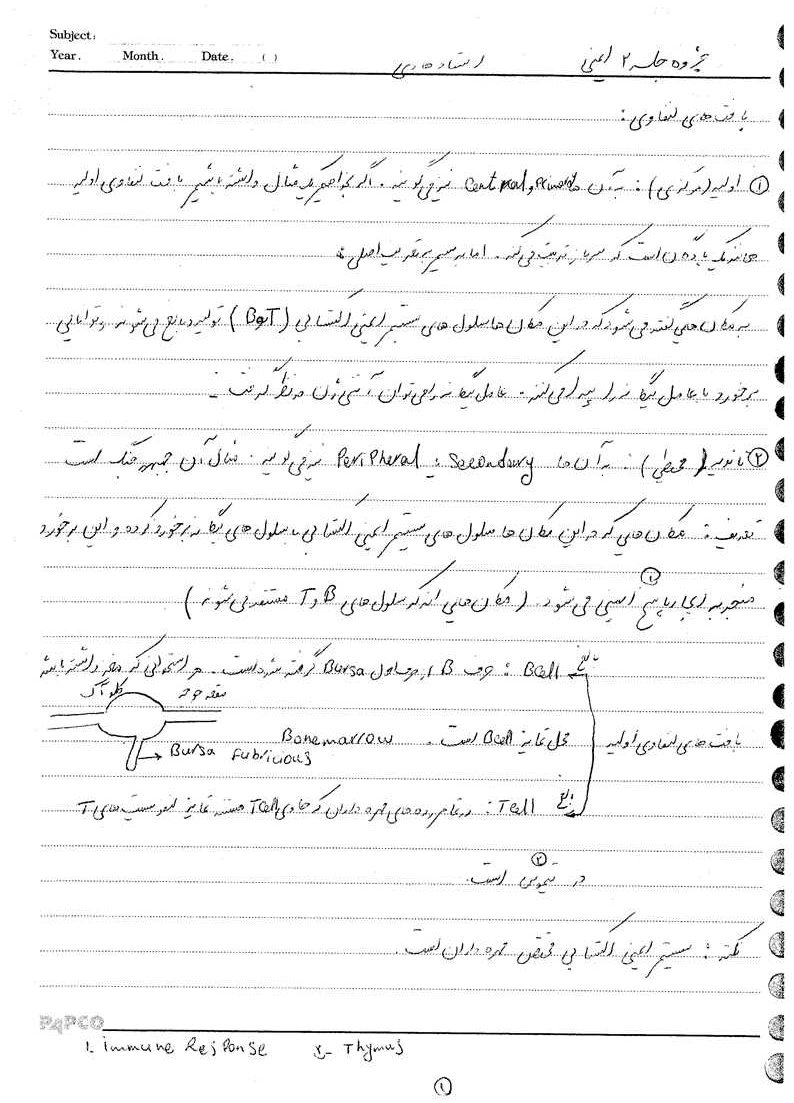 Subject:
Year. Month. Date. ( )
جزوه جلسه ۲ ایمنی استاد هادی
بافت های لنفاوی:
① اولیه (مرکزی): به آن ها Central و Primary نیز می گویند. اگر بخواهیم یک مثال داشته باشیم بافت لنفاوی اولیه
مانند یک پادگان است که سرباز تربیت می کند. اما برسیم به تعریف اصلی:
به مکان هایی گفته می شود که در این مکان ها سلول های سیستم ایمنی اکتسابی (T و B) تولید و بالغ می شوند و توانایی
برخورد با عامل بیگانه را پیدا می کنند. عامل بیگانه را می توان آنتی ژن در نظر گرفت.
② ثانویه (محیطی): به آن ها Secondary و Peripheral نیز می گویند. مثال آن جبهه جنگ است
تعریف: مکان هایی که در این مکان ها سلول های سیستم ایمنی اکتسابی با سلول های بیگانه برخورد کرده و این برخورد
منجر به ایجاد پاسخ ایمنی ① می شود. (مکان هایی اند که سلول های B و T مستقر می شوند)
بلوغ Bcell: حرف B از حرف اول Bursa گرفته شده است. در استخوانی که مغز داشته باشد
کلوآک
بافت های لنفاوی اولیه
محل تمایز Bcell است. Bonemarrow
Bursa Fubricious
بلوغ Tcell: در تمام رده های مهره داران که حاوی Tcell هستند تمایز لنفوسیت های T
در تیموس ② است.
نکته: سیستم ایمنی اکتسابی مختص مهره داران است.
PAPCO
1. immune Response ۲- Thymus
①